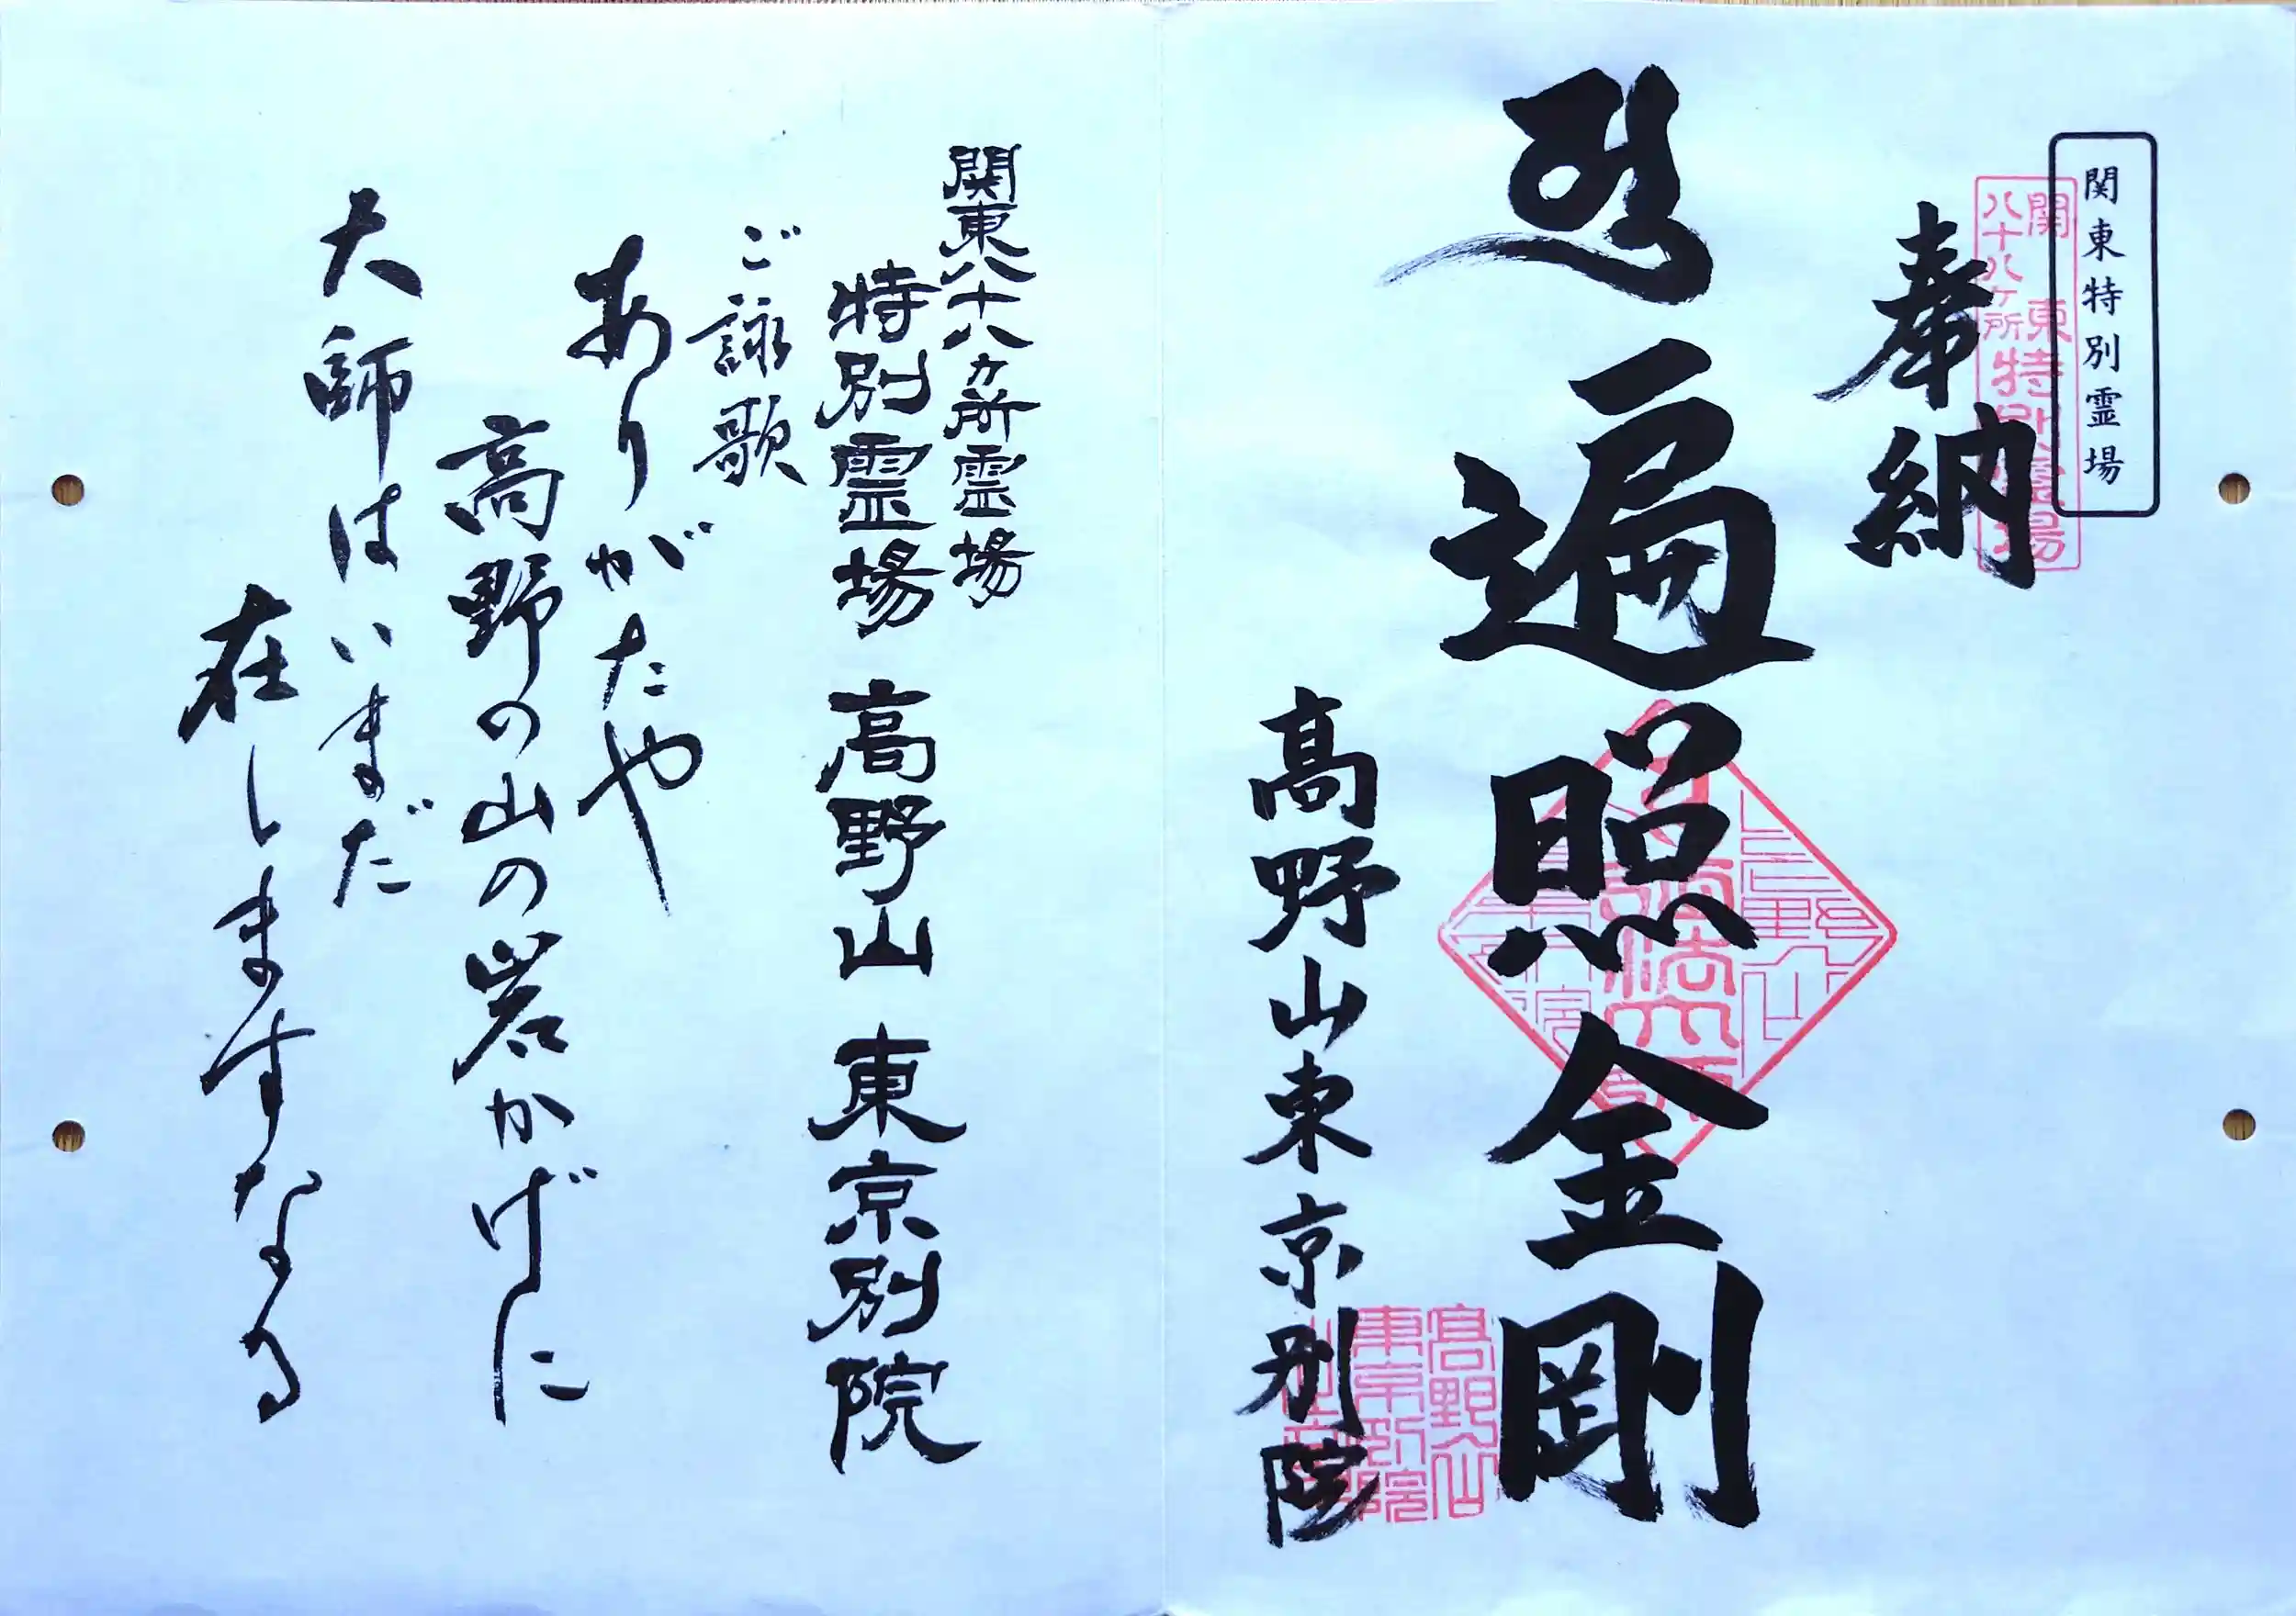 関東特別霊場
関東
八十八ヶ所
特別霊場
奉納
遍照金剛
高野山
遍照金剛
高野山東京別院
高野山
東京別院
関東八十八ヵ所霊場
特別霊場 高野山 東京別院
ご詠歌
ありがたや
高野の山の岩かげに
大師はいまだ
在しますなる